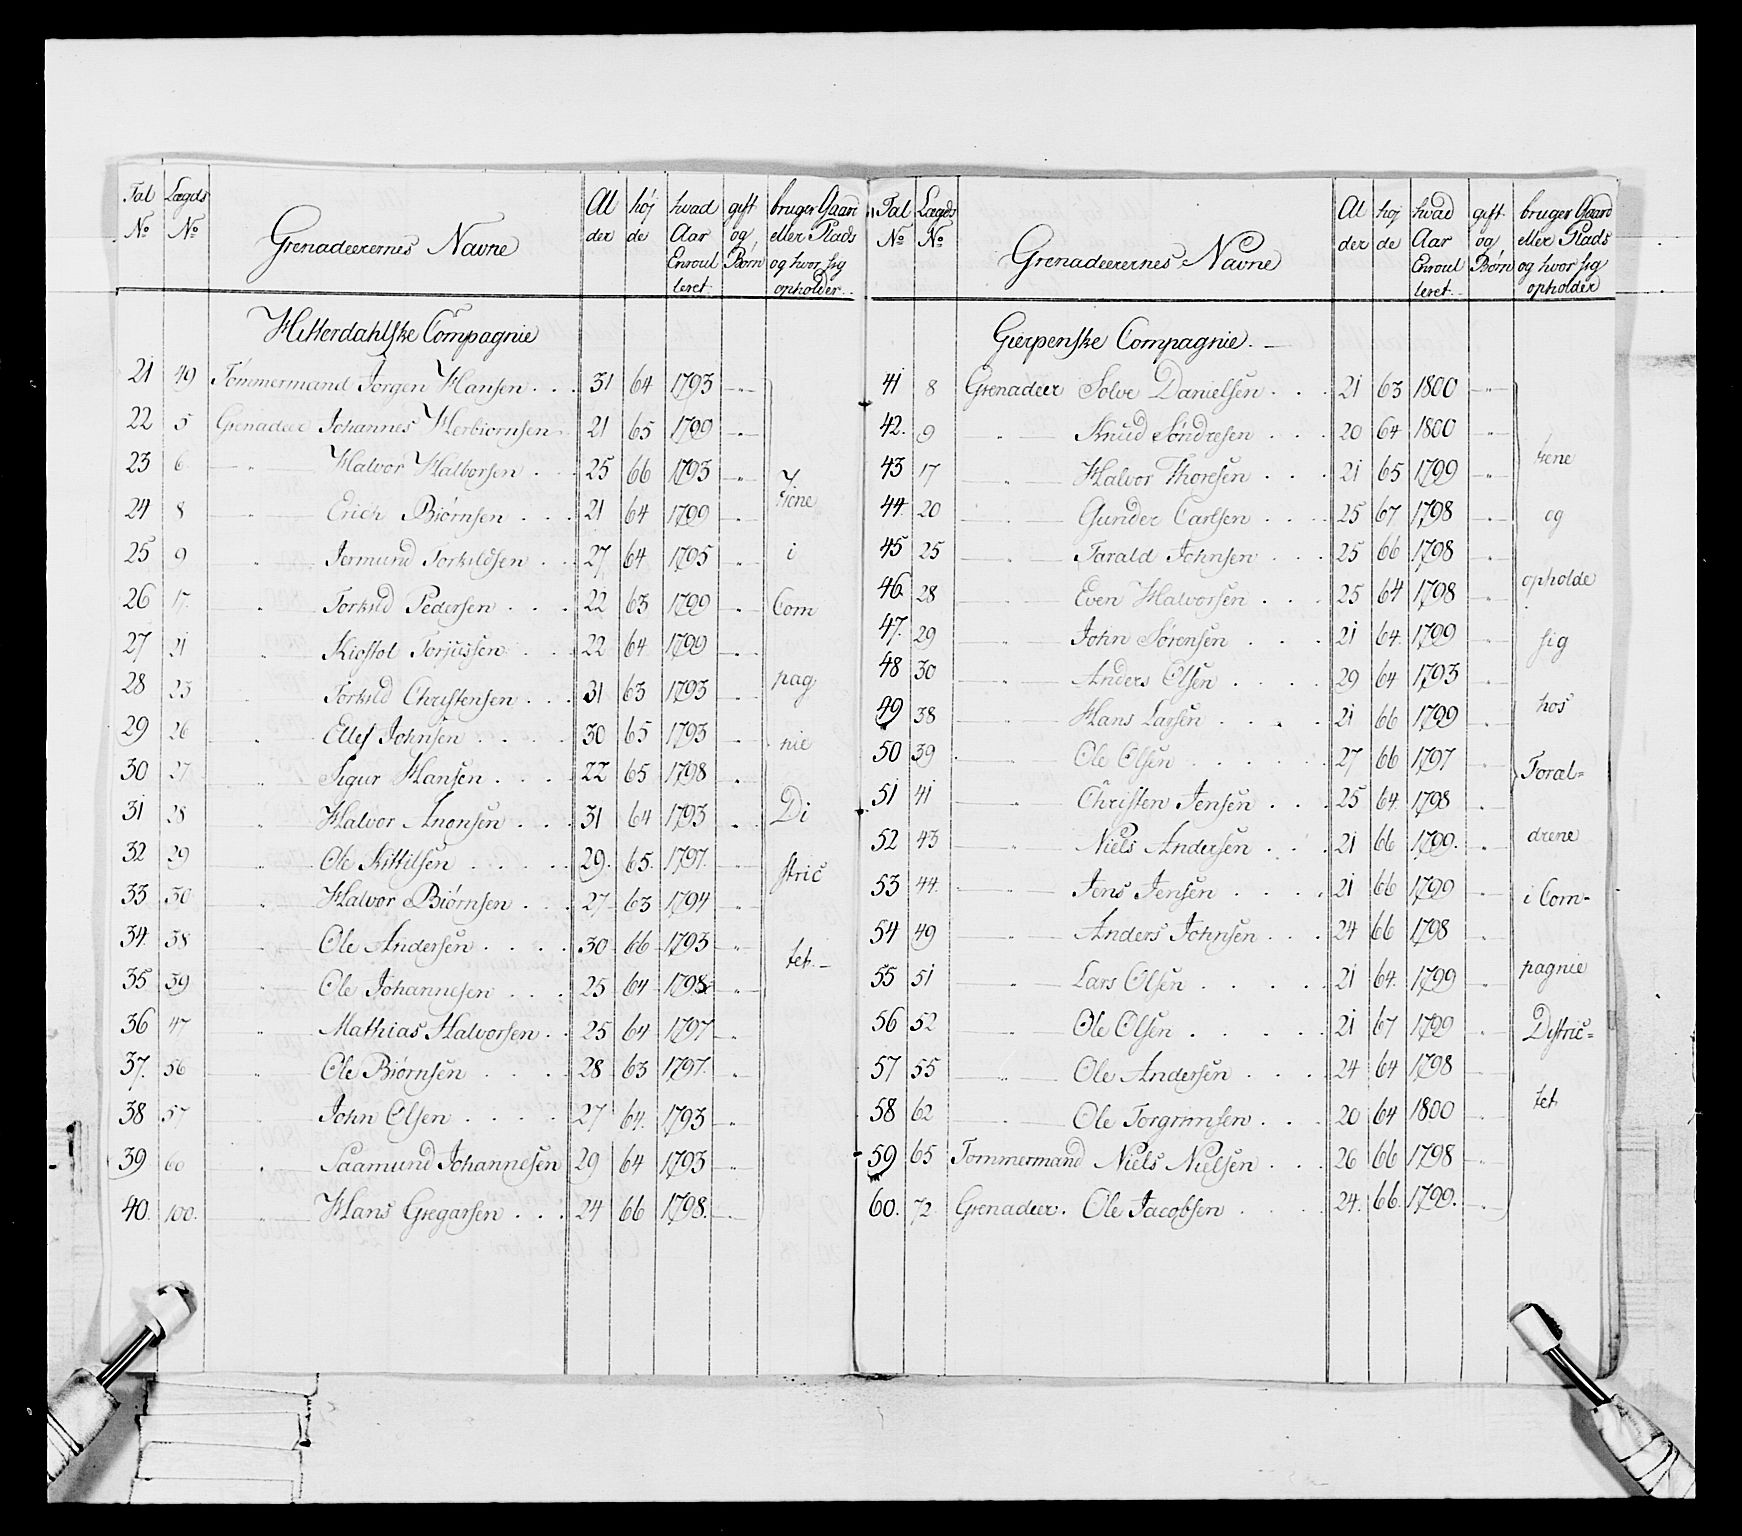 Tal No | Lægds No | Grenadeerernes Navne | Al der | høj de | hvad Aar Enroul leret | gift og Børn | bruger Gaard eller Plads og hvor sig opholder
Hitterdahlske Compagnie
21 49 Tømmermand Jørgen Hansen . . . 31 64 1793 - " -
22 5 Grenadeer Johannes Herbiørnsen . 21 65 1799 - " -
23 6 - " - Halvor Halvorsen . . . 25 66 1793 - " -
24 8 - " - Erich Biørnsen . . . 21 64 1799 - " -
25 9 " Jermund Torkildsen . . 27 64 1795 - " -
26 17. " Torkild Pedersen . . . 22 63 1799 - " -
27 21 " Kiostol Torjussen . . . 22 64 1799 - " -
28 23 " Torkild Christensen . . . 31 63 1793 - " -
29 26 " Ellef Johnsen . . . . 30 65 1793 - " -
30 27 " Sigur Hansen . . . . 22 65 1798 - " -
31 28 " Halvor Anonsen . . . 31 64 1793 - " -
32 29 " Ole Kittilsen . . . . 29. 65. 1797. - " -
33 30 " Halvor Biørnsen . . . 27 63 1794 - " -
34. 38 " Ole Andersen . . . . 30 66 1793 - " -
35 39 " Ole Johannesen . . . 25 64 1798 - " -
36 47 " Mathias Halvorsen . . 25 64 1797 - " -
37. 56 " Ole Biørnsen . . . . 28 63 1797. - " -
38 57 " John Olsen . . . . 27 64. 1793 - " -
39 60 " Saamund Johannesen 29 64 1793 - " -
40. 100. " Hans Gregarsen . . . 24 66 1798. - " -
tiene
i
Com
pag
nie
Di
stric
tet. -
Tal No | Lægds No | Grenadeerernes Navne | Al der | høj de | hvad Aar Enroul leret | gift og Børn | bruger Gaard eller Plads og hvor sig opholder
Gierpenske Compagnie. -
41 8 Grenadeer Solve Danielsen . . . 21 63 1800 - " -
42. 9 - " - Knud Søndresen . . . 20 64 1800 - " -
43 17 - " - Halvor Thoresen . . . 21 65 1799 - " -
44. 20 - " - Gunder Carlsen . . . . 25 67 1798 - " -
45 25 - " - Tarald Johnsen . . . 25 66 1798 - " -
46. 28 - " - Even Halvorsen . . . 25 64 1798 - " -
47. 29 - " - John Sørensen . . . 21 64. 1799 - " -
48 30 - " - Anders Olsen . . . . 29 64 1793 - " -
49 38 - " - Hans Larsen . . . . 21 66 1799 - " -
50 39 - " - Ole Olsen . . . . . . 27 66 1797 - " -
51 41 - " - Christen Jensen . . . 25 64. 1798 - " -
52 43 - " - Niels Andersen . . . 21 66 1799. - " -
53 44. - " - Jens Jensen . . . . 21 66 1799 - " -
54 49 - " - Anders Johnsen . . . 24 66 1798 - " -
55 51 - " - Lars Olsen . . . . . 21 64. 1799 - " -
56 52 - " - Ole Olsen . . . . . 21 67 1799 - " -
57 55 - " - Ole Andersen . . . . 24 64 1798 - " -
58 62 - " - Ole Torgrimsen . . . 20 64 1800 - " -
59 65 Tommermand Niels Nielsen . . . 26 66 1798 - " -
60. 72 Grenadeer. Ole Jacobsen . . . . 24. 66. 1799. - " -
tiene
og
opholde
sig
hos
Foræl=
drene
i Com-
pagnie
Distric=
tet